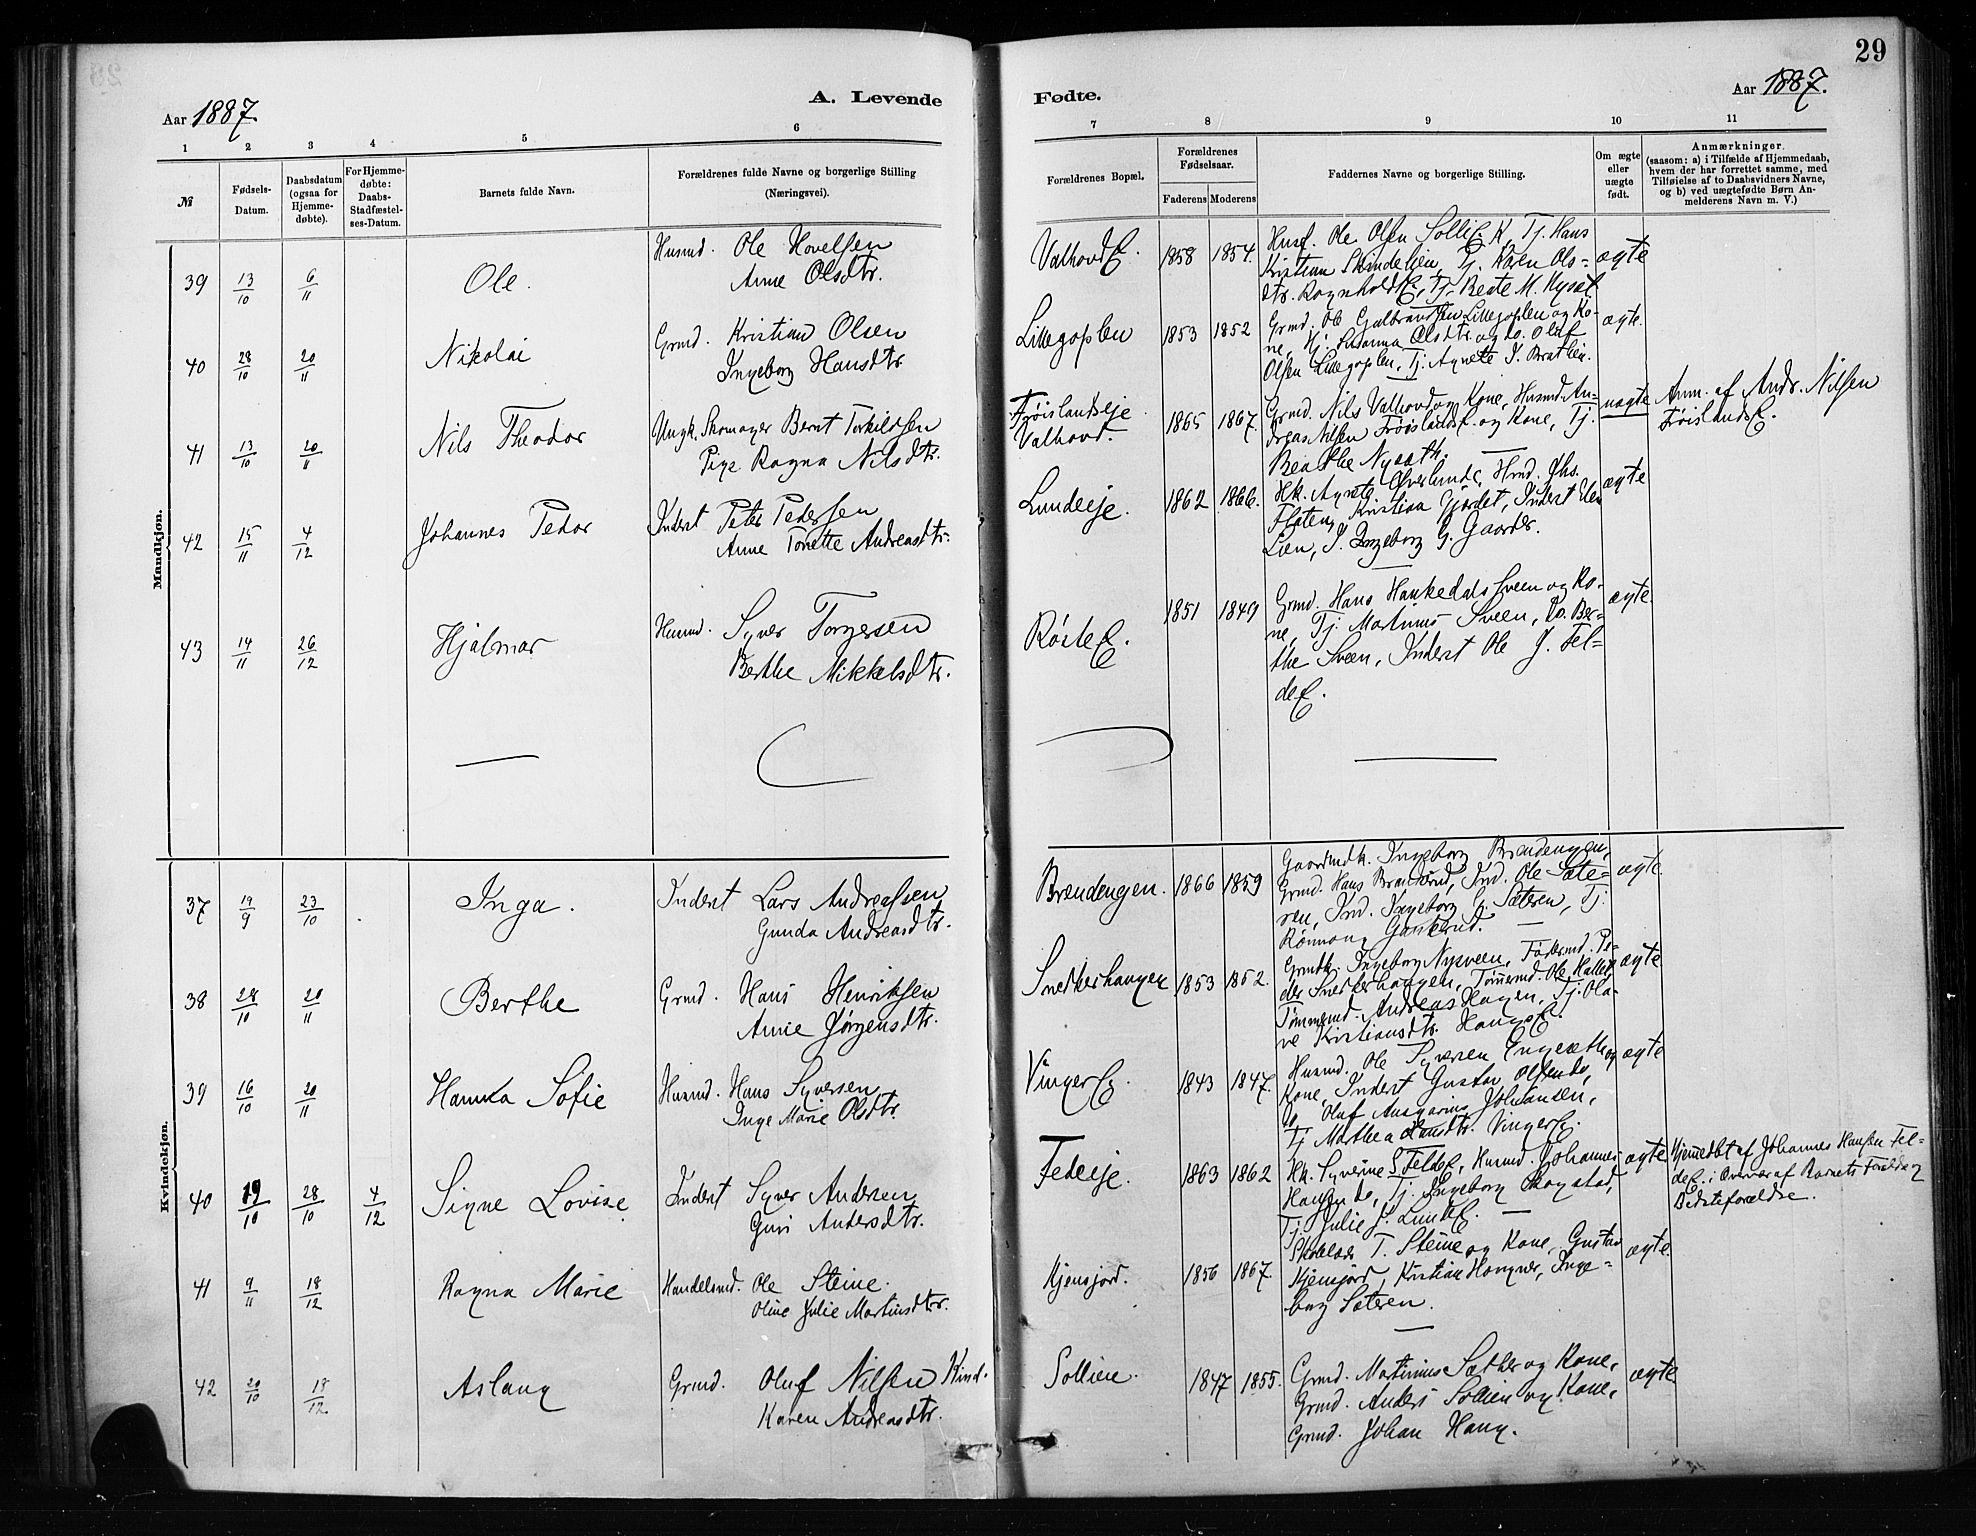 29
Aar 1887.
A. Levende
Fødte.
Aar 1887.
1 2 3 4 5 6 7 8 9 10 11
№
Fødsels-
Datum.
Daabsdatum
(ogsaa for
Hjemme-
døbte).
For Hjemme-
døbte:
Daabs-
Stadfæstel-
ses-Datum.
Barnets fulde Navn.
Forældrenes fulde Navne og borgerlige Stilling
(Næringsvei).
Forældrenes Bopæl.
Forældrenes
Fødselsaar.
Faderens Moderens
Faddernes Navne og borgerlige Stilling.
Om ægte
eller
uægte
født.
Anmærkninger.
(saasom: a) i Tilfælde af Hjemmedaab,
hvem der har forrettet samme, med
Tilføielse af to Daabsvidners Navne,
og b) ved uægtefødte Børn An-
melderens Navn m. V.)
Mandkjøn.
39 13/10 6/11 Ole.
Husmd. Ole Hovelsen
Anne Olsdtr.
ValhovdE. 1858 1854.
Husf. Ole Olsen SolliE K, Tj. Hans
Kristian Skindelien, Tj. Karen Ols=
dtr. RognholdtE, Tj. Beate M. Nysæt.
ægte
40 28/10 20/11 Nikolai
Grmd. Kristian Olsen
Ingeborg Hansdtr
Lillegoplen 1853 1852
Grmd. Ole Gulbrandsen Lillegoplen og Ko-
ne, Hj. Susanna Olsdtr. og do. Oluf
Olsen Lillegoplen, Tj. Agnethe J. Bratlien.
ægte.
41 13/10 20/11 Nils Theodor
Ungk. Skomager Bernt Torkildsen
Pige Ragna Nilsdtr.
Frøislandseje
Valhovd. 1865 1867.
Grmd. Nils Valhovd og Kone, Husmd. An-
dreas Nilsen FrøislandsE. og Kone, Tj.
Beathe Nysæth.
uægte
Anm. af Andr. Nilsen
FrøislandsE.
42 15/11 4/12 Johannes Pedor
Inderst Peter Pedersen
Anne Tonette Andreasdtr.
Lundeje. 1862 1866.
Hk. Agnete Øverlunde, Hmd. Johs.
Flaten, Kristian Gjordet, Inderst Elen
Lien, P. Ingeborg G. Gaarder.
ægte
43 14/11 26/12 Hjalmar
Husmd. Syver Torgersen
Berthe Mikkelsdtr.
RösteE. 1851 1849
Grmd. Hans Haukedals Sveen og Ko-
ne, Tj. Martinus Sveen, do. Ber=
the Sveen, Inderst Ole J. Fel=
deE.
ægte.
Kvindekjøn.
37 19/9 23/10 Inga.
Inderst Lars Andreassen
Gunda Andreasdtr.
Brændengen. 1866 1859
Gaardmdk. Ingeborg Brændengen,
Grmd. Hans Brandsrud, Ind. Ole Sæte=
ren, Ind. Ingeborg G. Sæteren, Tj.
Rönnaug Gaukerud.
ægte.
38 28/10 20/11 Berthe
Grmd. Hans Henriksen
Anne Jørgensdtr.
Snekkerhaugen 1853 1852.
Grmdk. Ingeborg Nysveen, Födermd. Pe-
der Snekkerhaugen, Tømmermd. Ole Hallen
Tömmermd. Andreas Hagen, Tj. Ola-
ve Kristiansdtr. HaugsE.
ægte
39 16/10 20/11 Hanka Sofie
Husmd. Hans Syversen
Inge Marie Olsdtr.
VingerE. 1843 1847.
Husmd. Ole Syversen Engesæth og
Kone, Inderst Gustav Olsen do,
do. Oluf Ansgarius Johansen,
Tj Marthea Hansdtr. VingerE.
ægte
40 19/10 28/10 4/12 Signe Lovise.
Inderst Syver Andersen
Guri Andersdtr.
Feldeje. 1863 1862
Hk. Syverine S. FeldeE, Husmd. Johannes
Hansen do, Tj. Ingeborg Rogstad,
Tj. Julie J. LundE.
ægte
Hjemmedbt af Johannes Hansen Fel=
deE. i Overvær af Barnets Forældre og
Bedsteforældre.
41 9/11 18/12 Ragna Marie
Handelsmd. Ole Steine.
Oline Julie Martinsdtr.
Kjensjord. 1856 1867.
Skolelær. T. Steine og Kone, Gustav
Kjensjord, Kristian Haugner, Inge=
borg Sæteren.
ægte.
42 20/10 18/12 Aslaug
Grmd. Oluf Nilsen Kind.
Karen Andreasdtr.
Sollien. 1847 1855.
Grmd. Martinius Sæther og Kone,
Grmd. Anders Sollien og Kone,
Grmd. Johan Haug.
ægte